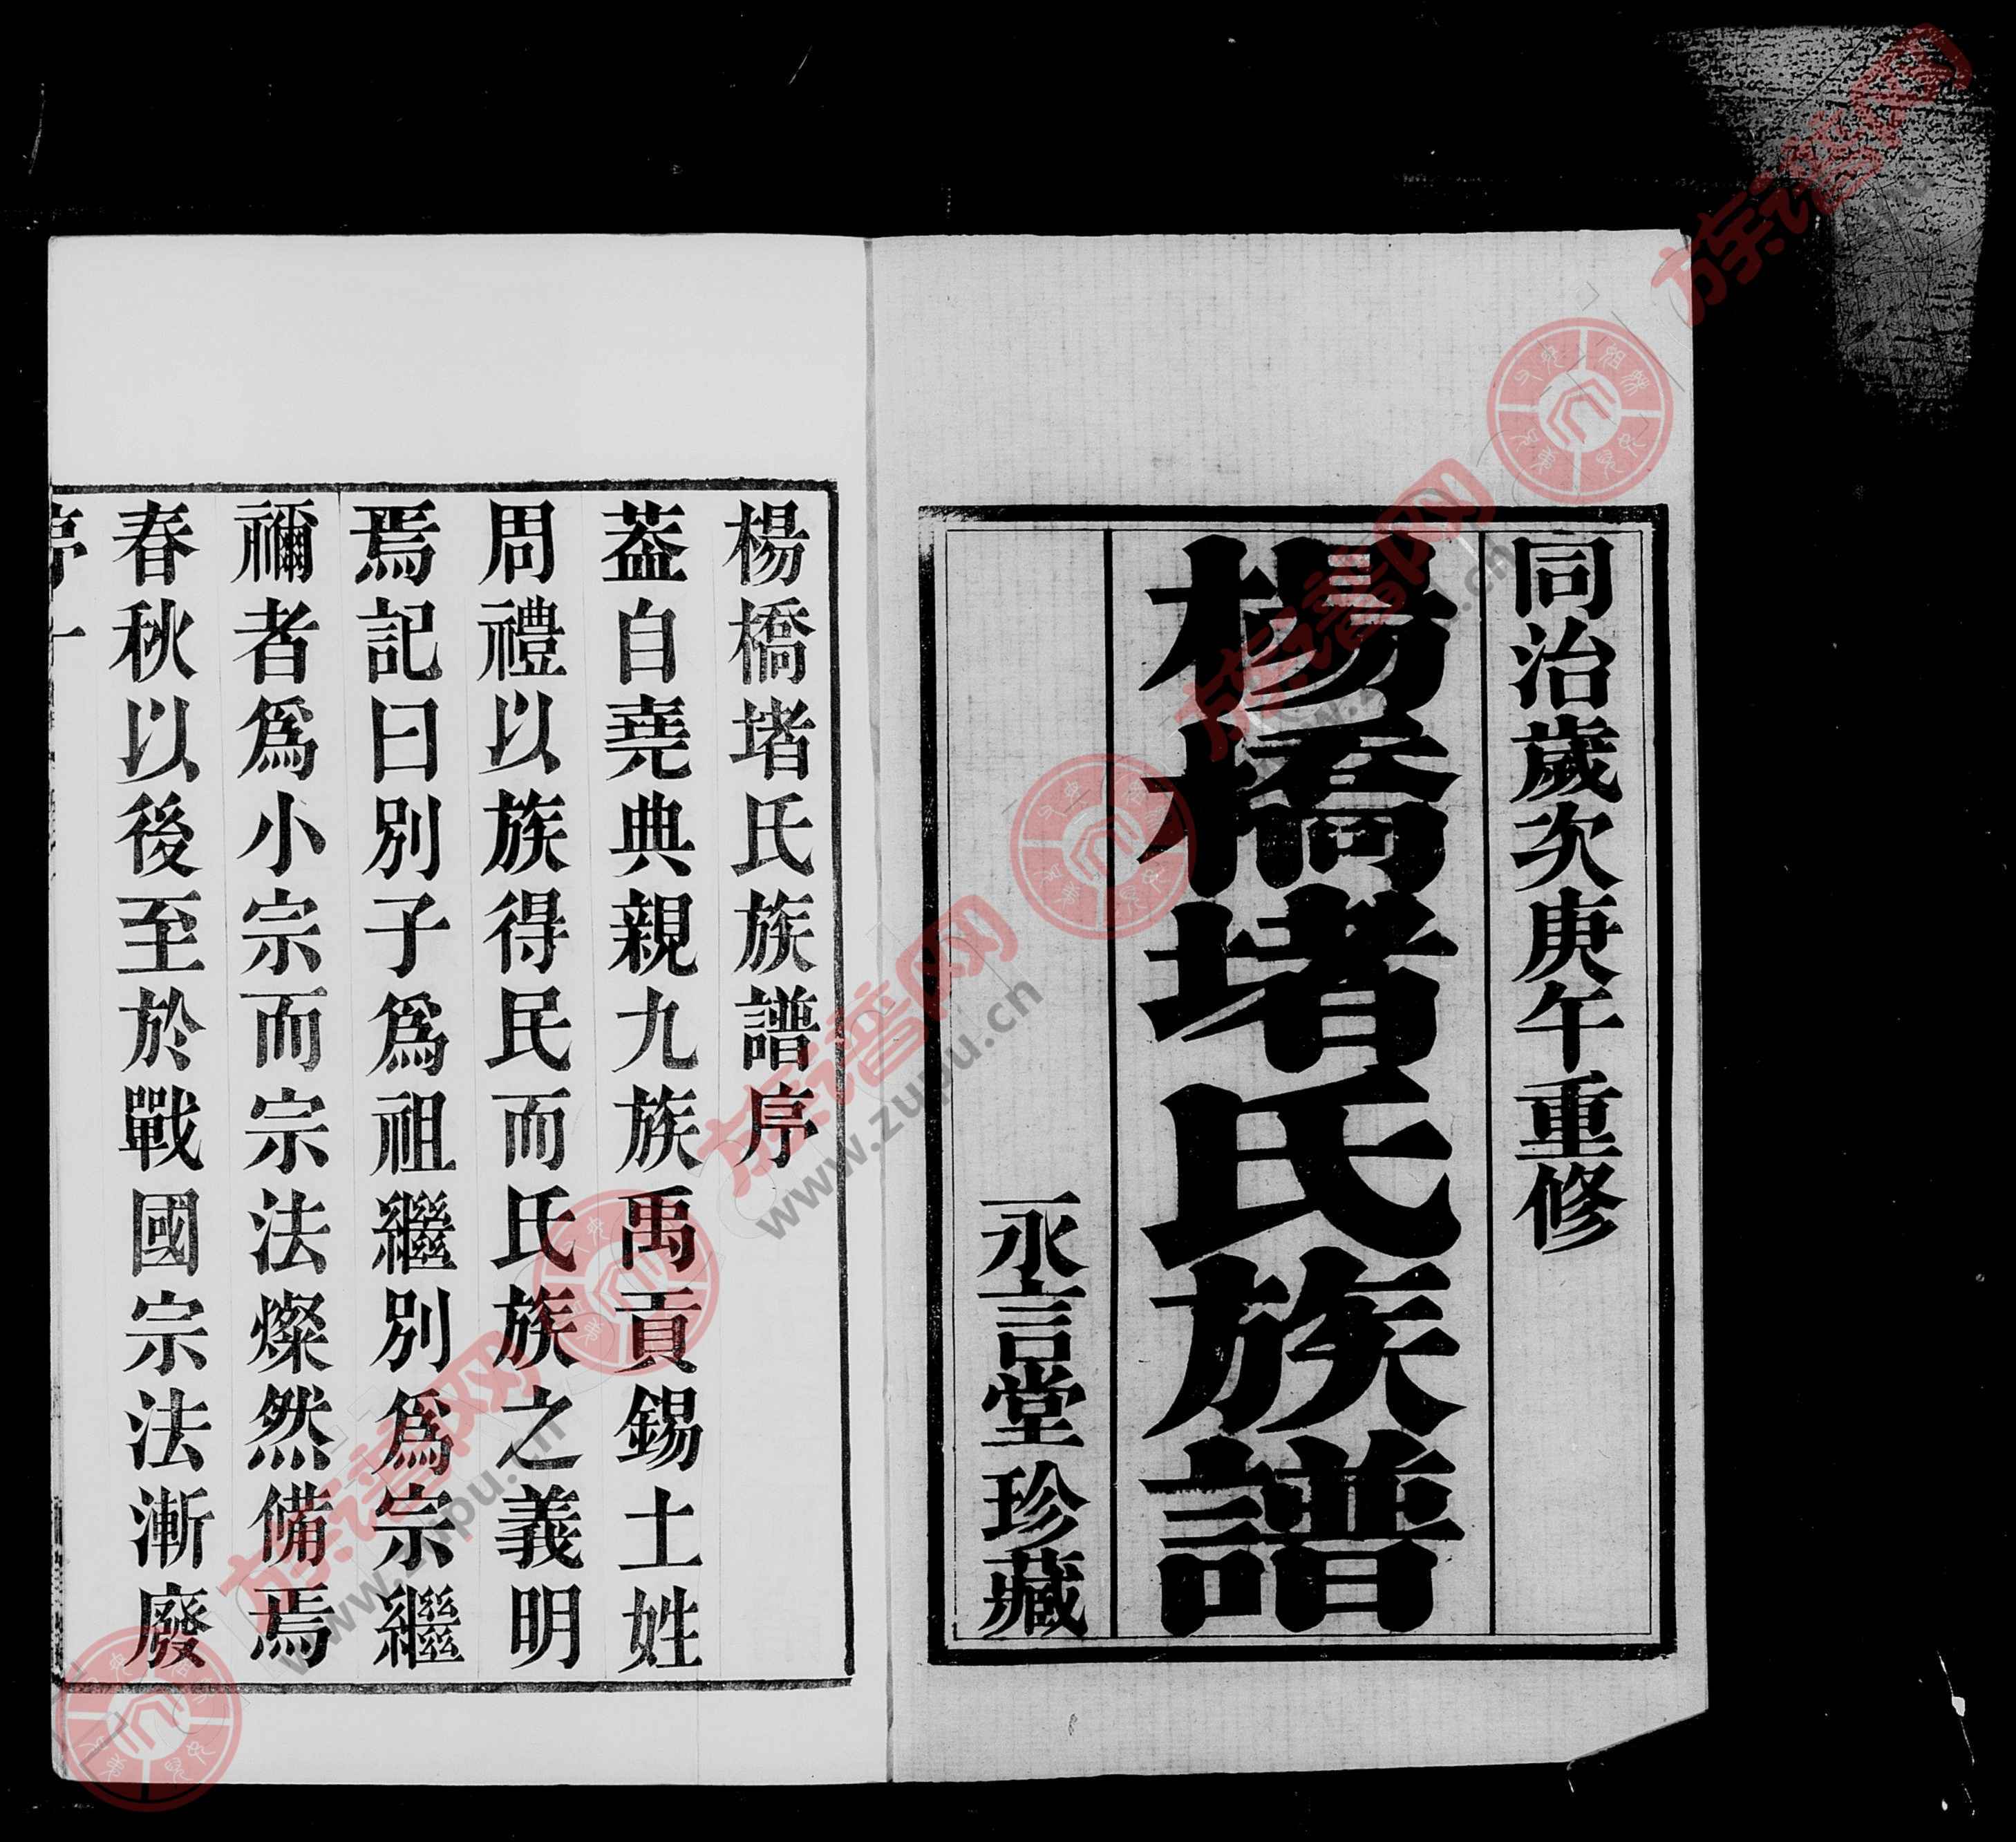 同治歲次庚午重修
楊橋堵氏族譜
永言堂珍藏
楊橋堵氏族譜序
葢自堯典親九族禹貢錫土姓
周禮以族得民而氏族之義明
焉記曰別子爲祖繼別爲宗繼
禰者爲小宗而宗法燦然備焉
春秋以後至於戰國宗法漸廢
族谱网
www.zupu.cn